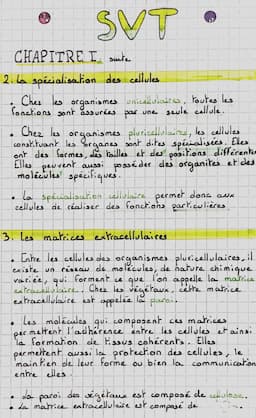 SVT
CHAPITRE I suite
2. la spécialisation des cellules
• Chez les organismes unicellulaires, toutes les
fonctions sont assurées par une seule cellule.
• Chez les organismes pluricellulaires, les cellules
constituant les organes sont dites spécialisées. Elles
ont des formes, des tailles et des positions différentes
Elles peuvent aussi posséder des organites et des
molécules spécifiques.
• La spécialisation cellulaire permet donc aux
cellules de réaliser des fonctions particulières.
3. Les matrices extracellulaires
• Entre les cellules des organismes pluricellulaires, il
existe un réseau de molécules, de nature chimique
variée, qui forment ce que l'on appelle la matrice
extracellulaire. Chez les végétaux, cette matrice
extracellulaire est appelée la paroi.
• Les molécules qui composent ces matrices
permettent l'adhérence entre les cellules et ainsi
la formation de tissus cohérents. Elles
permettent aussi la protection des cellules, le
maintien de leur forme ou bien la communication
entre elles.
• La paroi des végétaux est composé de cellulose.
• La matrice extracellulaire est composé de